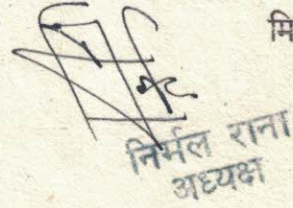 मि
निर्मल राना
अध्यक्ष